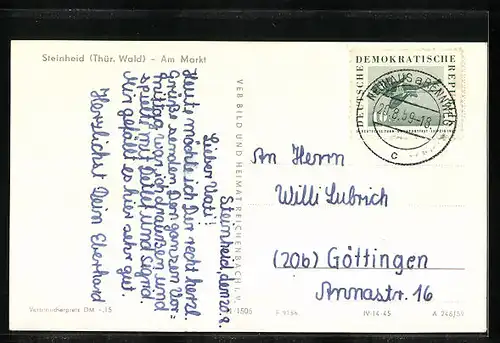 Steinheid (Thür. Wald) - Am Markt
Steinheid, den 20.8.
Lieber Vati!
Heute möchte ich Dir recht herzl.
Grüße senden. Den ganzen Vor=
mittag war ich draußen und
spielte mit Detlef und Sigrid.
Mir gefällt es hier sehr gut.
Herzlichst Dein Eberhard
VEB BILD UND HEIMAT REICHENBACH i. V.
DEUTSCHE DEMOKRATISCHE REP
NEUHAUS a RENNWEG
59-18
c
An Herrn
Willi Lubrich
(20b) Göttingen
Annastr. 16
Verbraucherpreis DM -,15
1505
IV-14-45
A 246/59